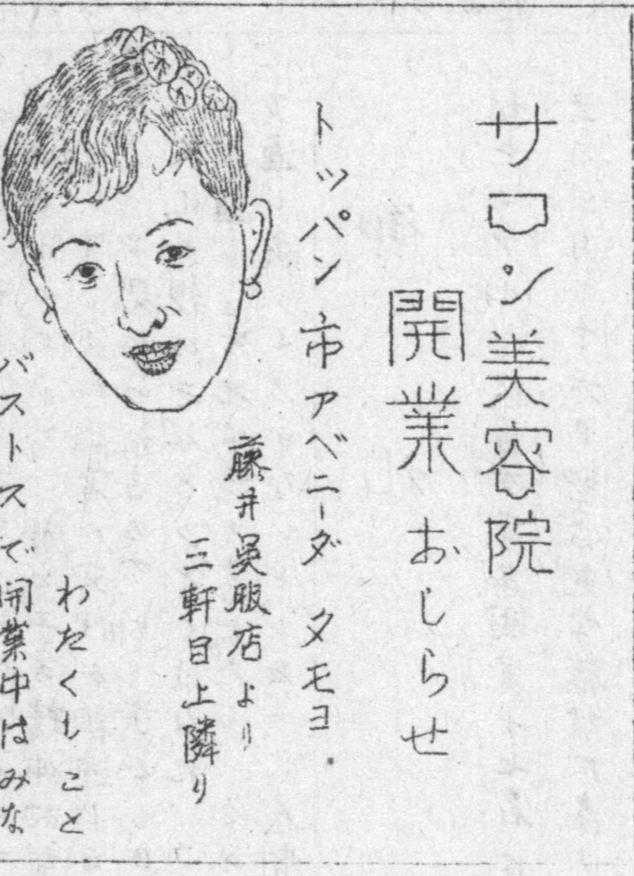 サロン美容院
開業おしらせ
トッパン市アベニーダ タモヨ.
藤井呉服店より
三軒目上隣り
わたくしこと
バストスで開業中はみな